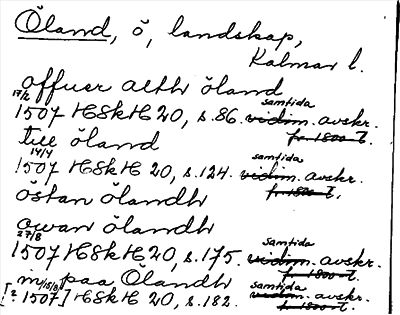 Öland, ö, landskap,
Kalmar l.
offuer alth öland
17/2 samtida
1507 HSkH 20, s.86. vidim. avskr.
fr. 1800 t.
till öland
14/4 samtida
1507 HSkH 20, s.124. vidim. avskr.
fr. 1800 t.
östan ölandh
owan ölandh
27/8 samtida
1507 HSkH 20, s.175. vidim. avskr.
fr. 1800 t.
paa Ölandh
samtida
[? 1507] HSkH 20, s.182. vidim. avskr.
fr. 1800 t.